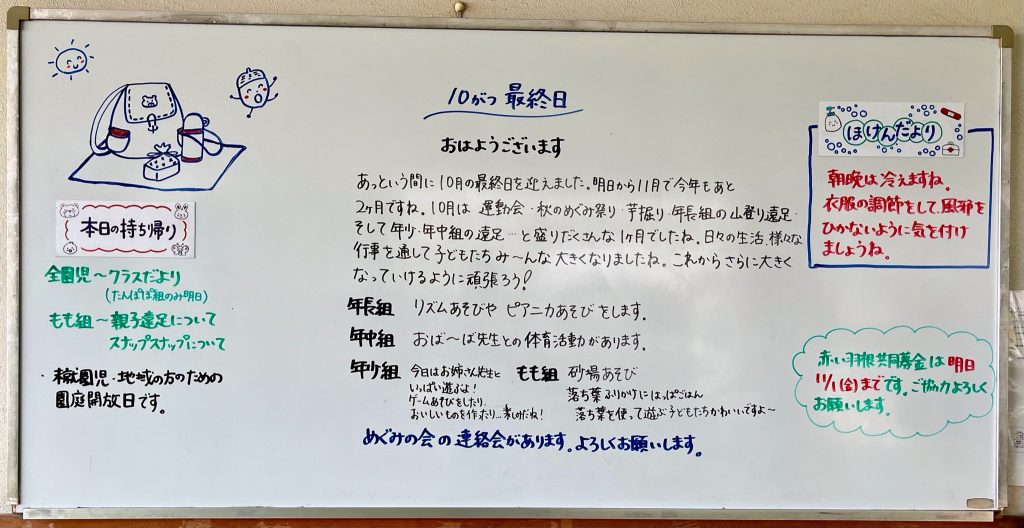 10がつ 最終日
おはようございます
あっという間に10月の最終日を迎えました。明日から11月で今年もあと
2ヶ月ですね。10月は 運動会・秋のめぐみ祭り・芋掘り・年長組の山登り遠足・
そして年少・年中組の遠足…と盛りだくさんな1ヶ月でしたね。日々の生活、様々な
行事を通して子どもたち み〜んな 大きくなりましたね。これからさらに大きく
なっていけるように頑張ろう!
年長組 リズムあそびや ピアニカあそび をします。
年中組 おば〜ば先生との体育活動があります。
年少組 今日はお姉さん先生と
いっぱい遊ぶよ!
ゲームあそびをしたり、
おいしいものを作ったり…楽しみだね!
もも組 砂場あそび
落ち葉ふりかけにはっぱごはん
落ち葉を使って遊ぶ子どもたちかわいいですよ〜
めぐみの会の連絡会があります。よろしくお願いします。
本日の持ち帰り
全園児〜クラスだより
(たんぽぽ組のみ明日)
もも組〜親子遠足について
スナップスナップについて
・未就園児・地域の方のための
園庭開放日です。
ほけんだより
朝晩は冷えますね。
衣服の調節をして、風邪を
ひかないように気を付け
ましょうね。
赤い羽根共同募金は明日
11/1(金)までです。ご協力よろしく
お願いします。